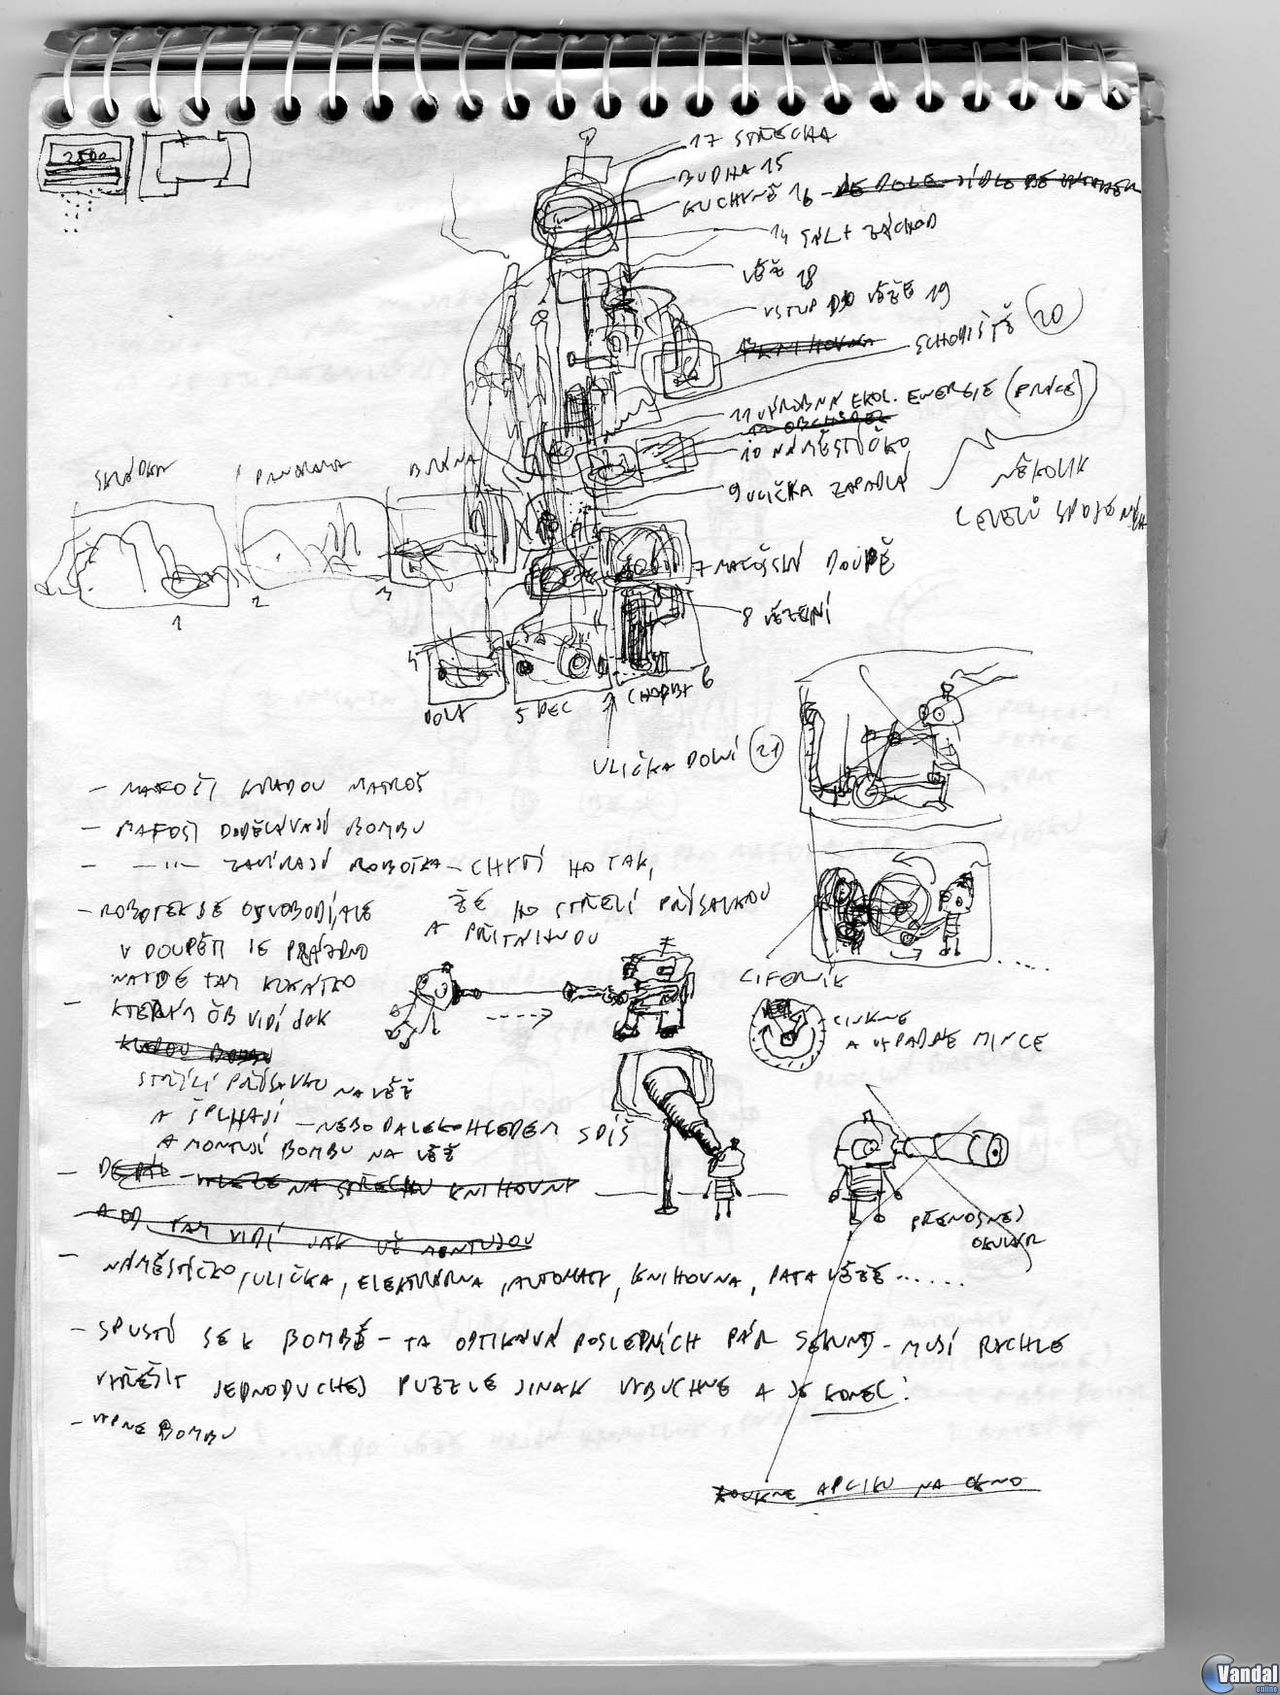 2500
17 STŘECHA
BUDHA 15
KUCHYNĚ 16 -
14 SÁL + ZÁCHOD
VĚŽ 18
VSTUP DO VĚŽE 19
SCHODIŠTĚ 20
11 VÝROBNA EKOL. ENERGIE (PRÁCE)
10 NÁMĚSTÍČKO
9 ULIČKA ZAPADLÁ
NĚKOLIK
LEVELŮ SPOJENÝCH
SKLÁDKA PANORAMA BRÁNA
1 2 3
7 MAFOŠSKÝ DOUPĚ
8 VĚZENÍ
4
DOLY 5 PEC CHODBA 6
ULIČKA DOLNÍ 21
- MAFOŠI KRADOU MATROŠ
- MAFOŠI DODĚLÁVAJÍ BOMBU
- —"— ZAVÍRAJÍ ROBOTKA - CHYTÍ HO TAK,
ŽE HO STŘELÍ PŘÍSAVKOU
A PŘITÁHNOU
- ROBOTEK SE OSVOBODÍ, ALE
V DOUPĚTI JE PRÁZDNO
NAJDE TAM KUKÁTKO
- KTERÝM VIDÍ JAK
STŘÍLÍ PŘÍSAVKU NA VĚŽ
A ŠPLHAJÍ - NEBO DALEKOHLEDEM SPÍŠ
A MONTUJÍ BOMBU NA VĚŽ
CIFERNÍK
CINKNE
A VYPADNE MINCE
PŘENOSNEJ
OKULÁR
- VLEZE NA STŘECHU KNIHOVNY
A OD TAM VIDÍ JAK UŽ MONTUJOU
- NÁMĚSTÍČKO, ULIČKA, ELEKTRÁRNA, AUTOMATY, KNIHOVNA, PATA VĚŽE ......
- SPUSTÍ SE K BOMBĚ - TA ODTIKÁVÁ POSLEDNÍCH PÁR SEKUND - MUSÍ RYCHLE
VYŘEŠIT JEDNODUCHEJ PUZZLE JINAK VYBUCHNE A JE KONEC!
- VYPNE BOMBU
NA OKNO
Vandal
online